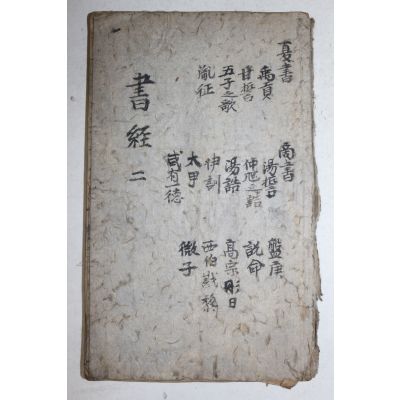 夏書
禹貢
甘誓
五子之歌
胤征
商書
湯誓
仲虺之誥
湯誥
伊訓
太甲
咸有一德
盤庚
說命
高宗肜日
西伯戡黎
微子
書経二